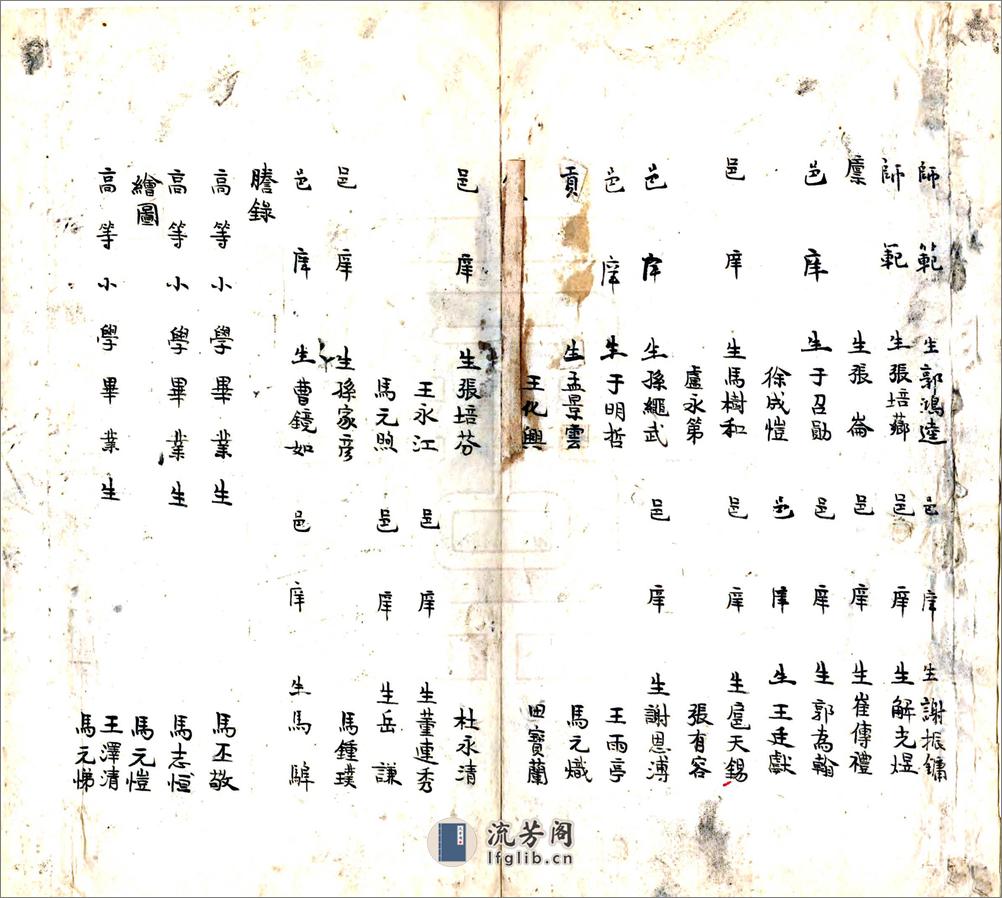 師範生郭鴻逵 邑庠生謝振鏞
師範生張培薌 邑庠生解光煜
廩生張崙 邑庠生崔傳禮
邑庠生于召勛 邑庠生郭為翰
徐成愷 邑庠生王廷獻
邑庠生馬樹和 邑庠生盧天錫
盧永第 張有容
邑庠生孫繩武 邑庠生謝恩溥
邑庠生于明哲 王雨亭
貢生孟景雲 馬元熾
王化興 田寶蘭
邑庠生張培芬 杜永清
王永江 邑庠生董連秀
馬元煦 邑庠生岳謙
邑庠生孫家彥 馬鍾璞
邑庠生曹鏡如 邑庠生馬騂
謄錄
高等小學畢業生 馬丕敬
高等小學畢業生 馬志恒
繪圖 馬元愷
高等小學畢業生 王澤清
馬元悌
流芳阁
lfglib.cn